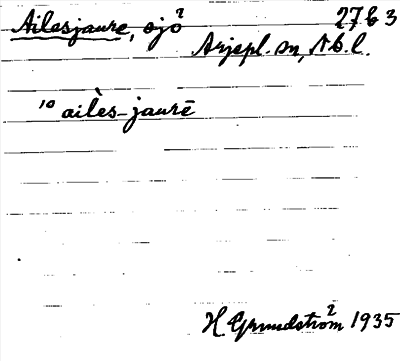 Ailesjaure, sjö² 27 B 3
Arjepl. sn, Nb. l.
10 ailès-jaurē
H Grundström² 1935